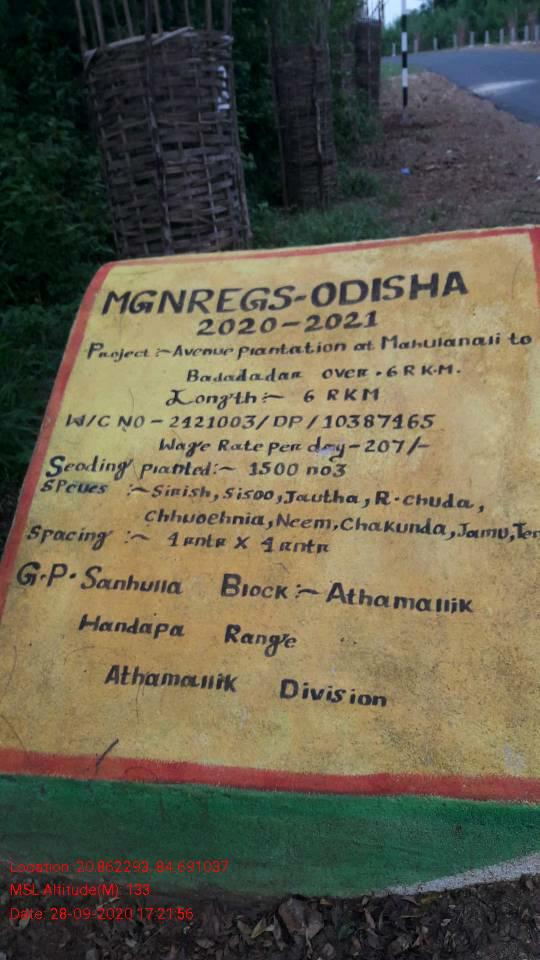 MGNREGS-ODISHA
2020-2021
Project :- Avenue plantation at Mahulanali to
Badadadar over .6 RKM.
Length :- 6 RKM
W/C NO - 2421003/DP/10387465
Wage Rate per day - 207/-
Seeding planted:- 1500 nos
Species :- Sirish, Sisoo, Jautha, R.chuda,
Chhuoehnia, Neem, Chakunda, Jamu,
Spacing :- 4 mtr X 4 mtr
G.P. Sanhulla Block :- Athamallik
Handapa Range
Athamallik Division
Location: 20.862293, 84.691037
MSL Altitude(M): 133
Date: 28-09-2020 17:21:56